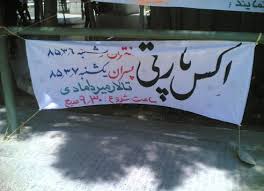 اکس پارتی
دختران شنبه ۸۵۳۶
پسران یکشنبه ۸۵۳۷
تالار میردامادی
ساعت شروع : ۶٫۳۰ صبح